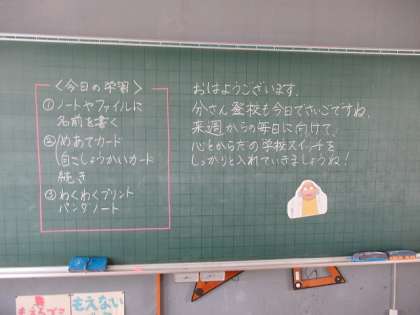 <今日の学習>
①ノートやファイルに
名前を書く
②めあてカード
自こしょうかいカード
続き
③わくわくプリント
パンダノート
おはようございます。
分さん登校も今日でさいごですね。
来週からの毎日に向けて、
心とからだの学校スイッチを
しっかりと入れていきましょうね!
もえるゴミ
もえない